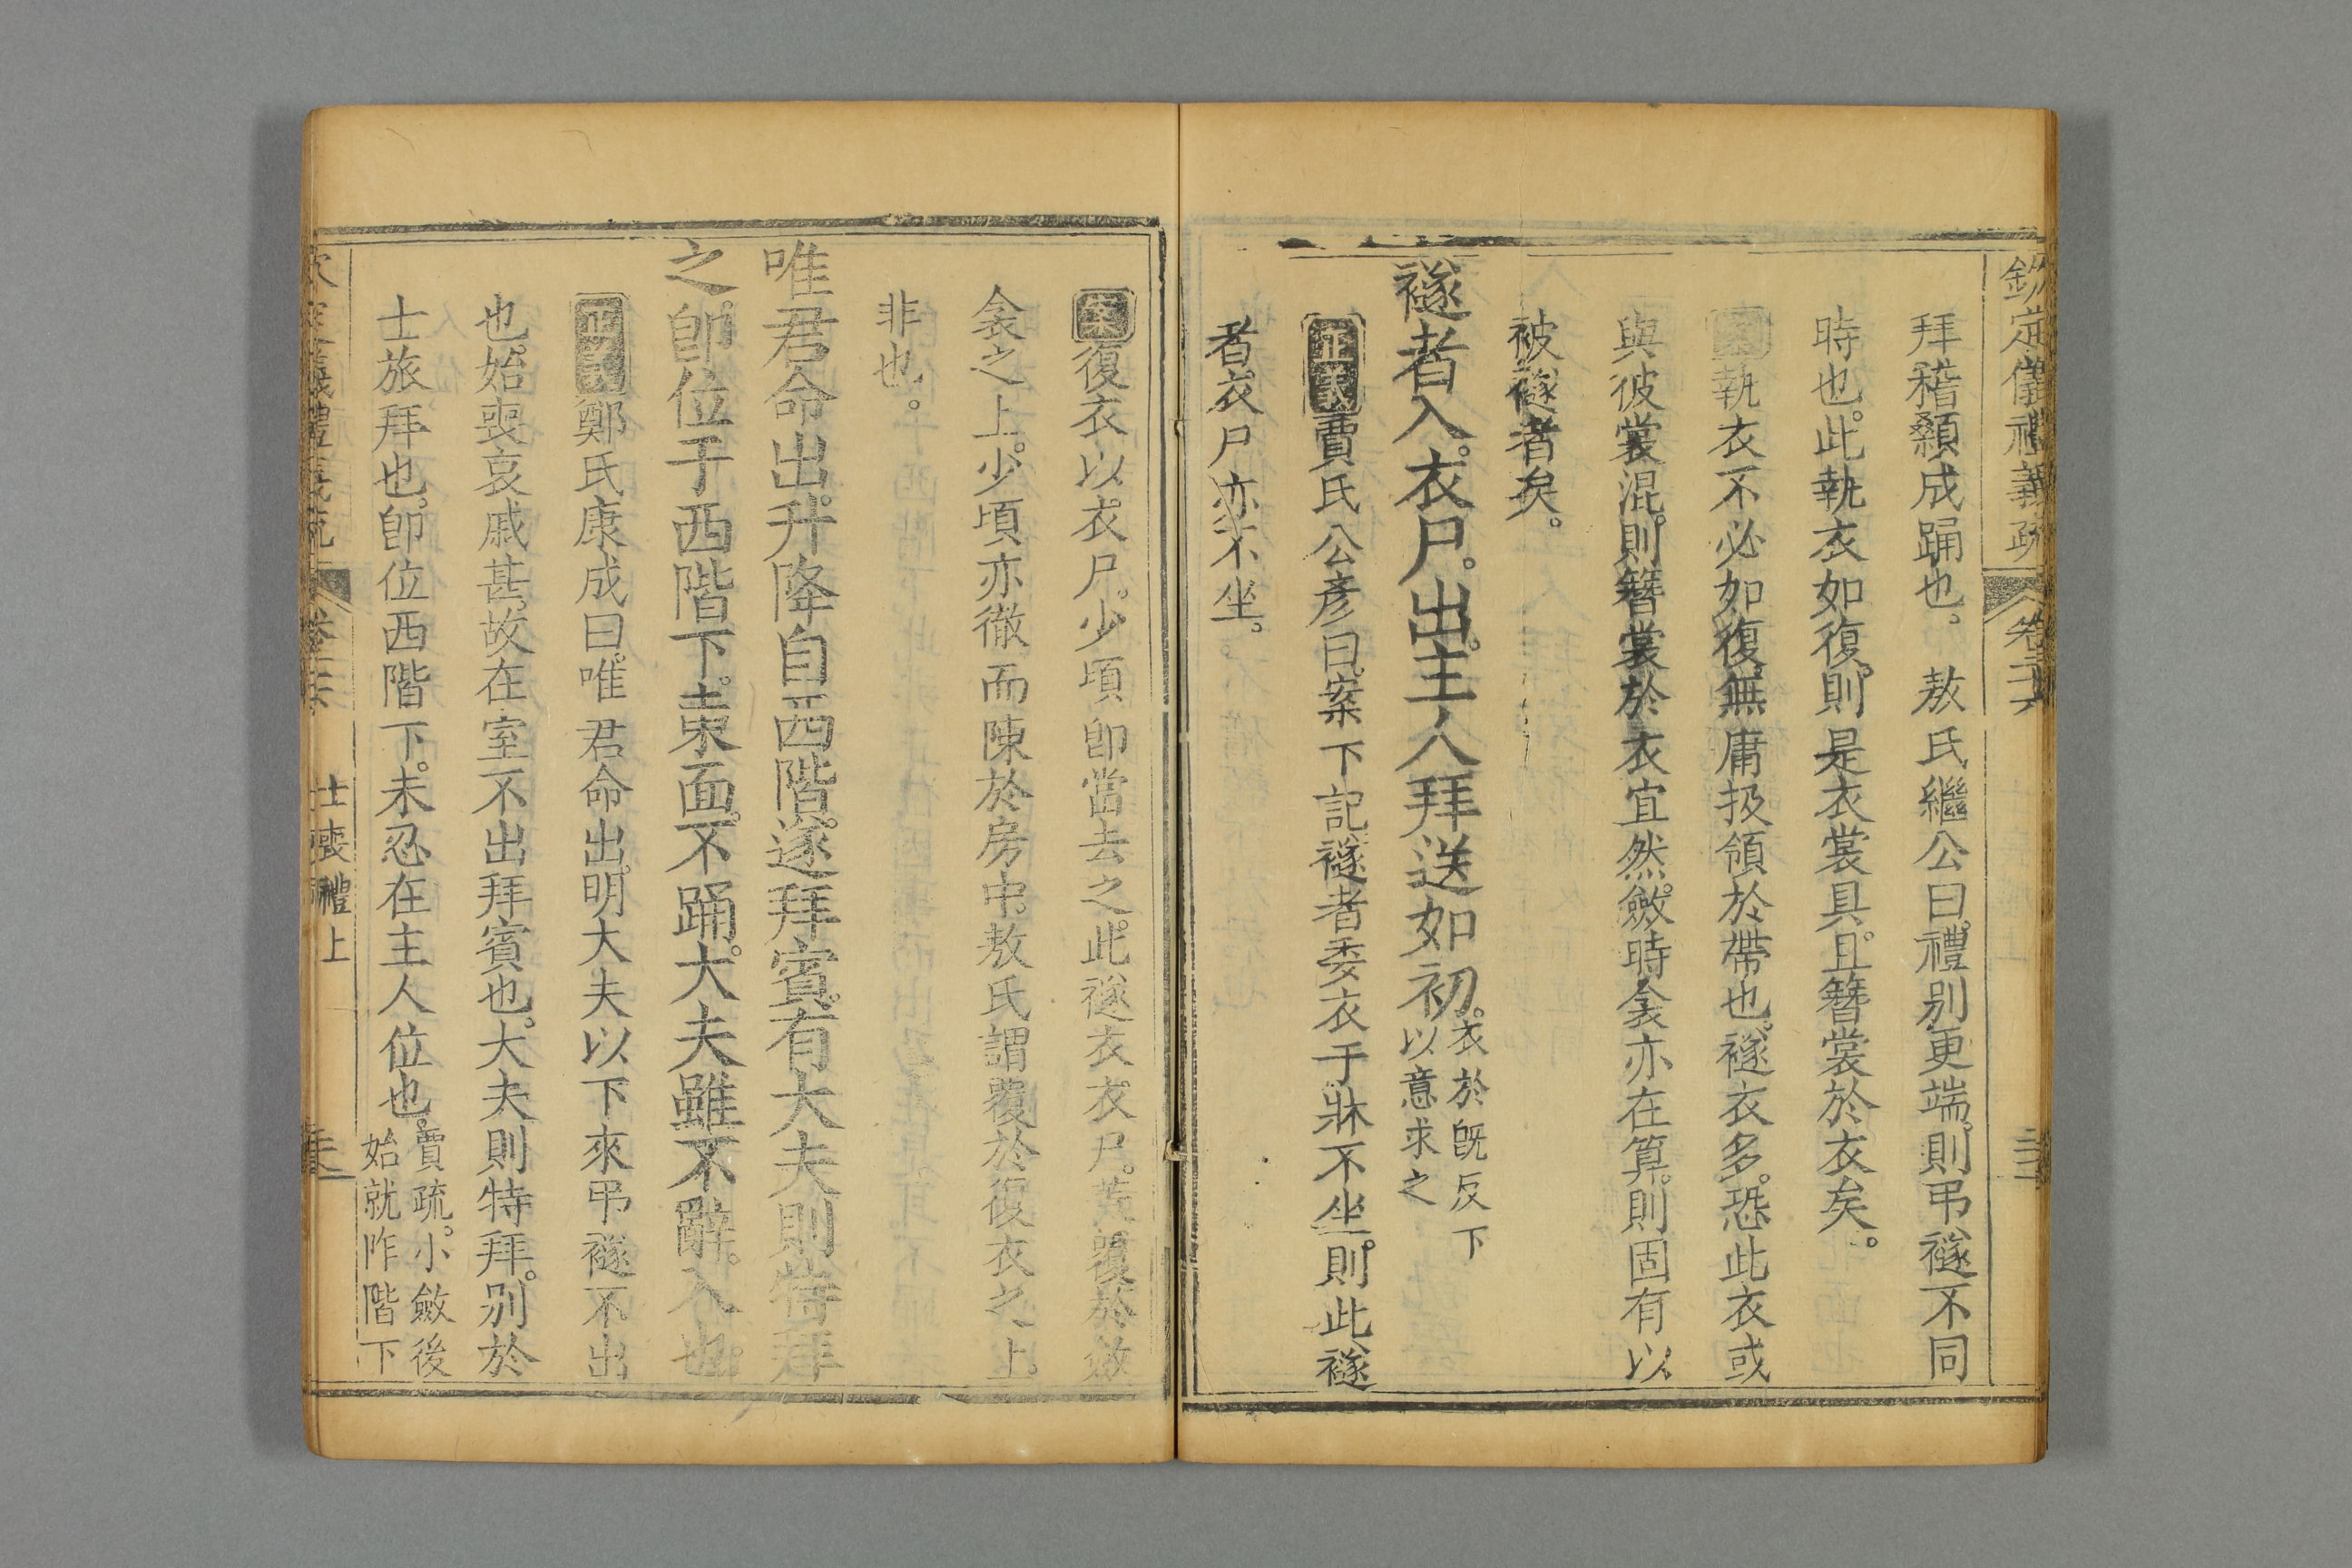 欽定儀禮義疏 卷二十六
拜稽顙成踊也。 敖氏繼公曰。禮别更端。則弔襚不同
時也。此執衣如復。則是衣裳具。且簪裳於衣矣。
案執衣不必如復。無庸扱領於帶也。襚衣多。恐此衣或
與彼裳混。則簪裳於衣宜然。斂時衾亦在算。則固有以
被襚者矣。
襚者入。衣尸。出。主人拜送如初。衣於旣反下
以意求之
正義賈氏公彥曰。案下記襚者委衣于牀不坐。則此襚
者衣尸亦不坐。
案復衣以衣尸。少頃卽當去之。此襚衣衣尸。若覆於斂
衾之上。少頃亦徹而陳於房中。敖氏謂覆於復衣之上。
非也。
唯君命出。升降自西階。遂拜賓。有大夫則特拜
之。卽位于西階下。東面。不踊。大夫雖不辭。入也。
正義鄭氏康成曰。唯君命出。明大夫以下來弔襚不出
也。始喪哀戚甚。故在室不出拜賓也。大夫則特拜。别於
士旅拜也。卽位西階下。未忍在主人位也。賈疏。小斂後
始就阼階下
士喪禮上